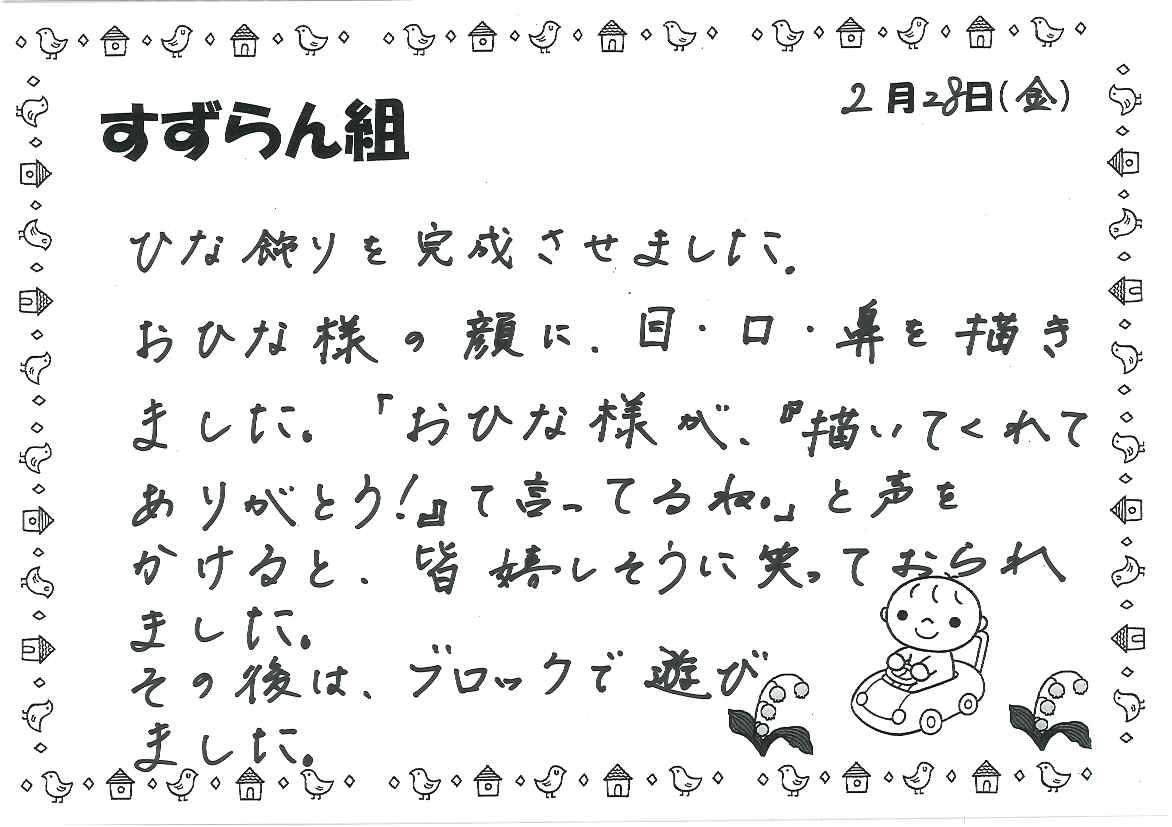 2月28日(金)
すずらん組
ひな飾りを完成させました。
おひな様の顔に、目・口・鼻を描き
ました。「おひな様が、『描いてくれて
ありがとう!』て言ってるね。」と声を
かけると、皆嬉しそうに笑っておられ
ました。
その後は、ブロックで遊び
ました。